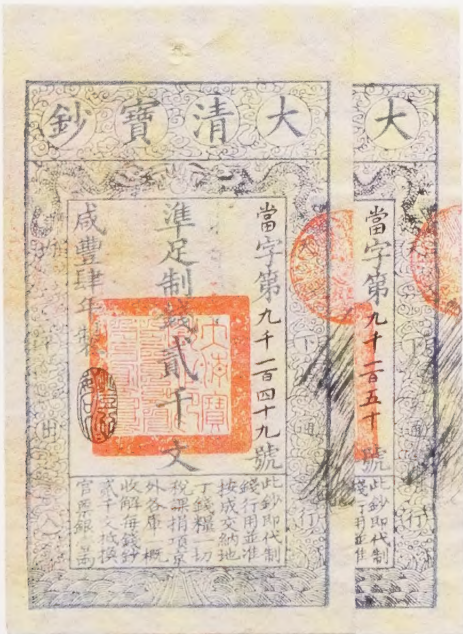 大清寶鈔
當字第九千一百四十九號
準足制錢貳千文
咸豐肆年製
下通行
平出入
此鈔即代制
錢行用並准
按成交納地
丁錢糧一切
稅課捐項京
外各庫一概
收解每錢鈔
貳千文抵換
官票銀
大
當字第九千一百五十號
下通行
此鈔即代制
錢行用並准